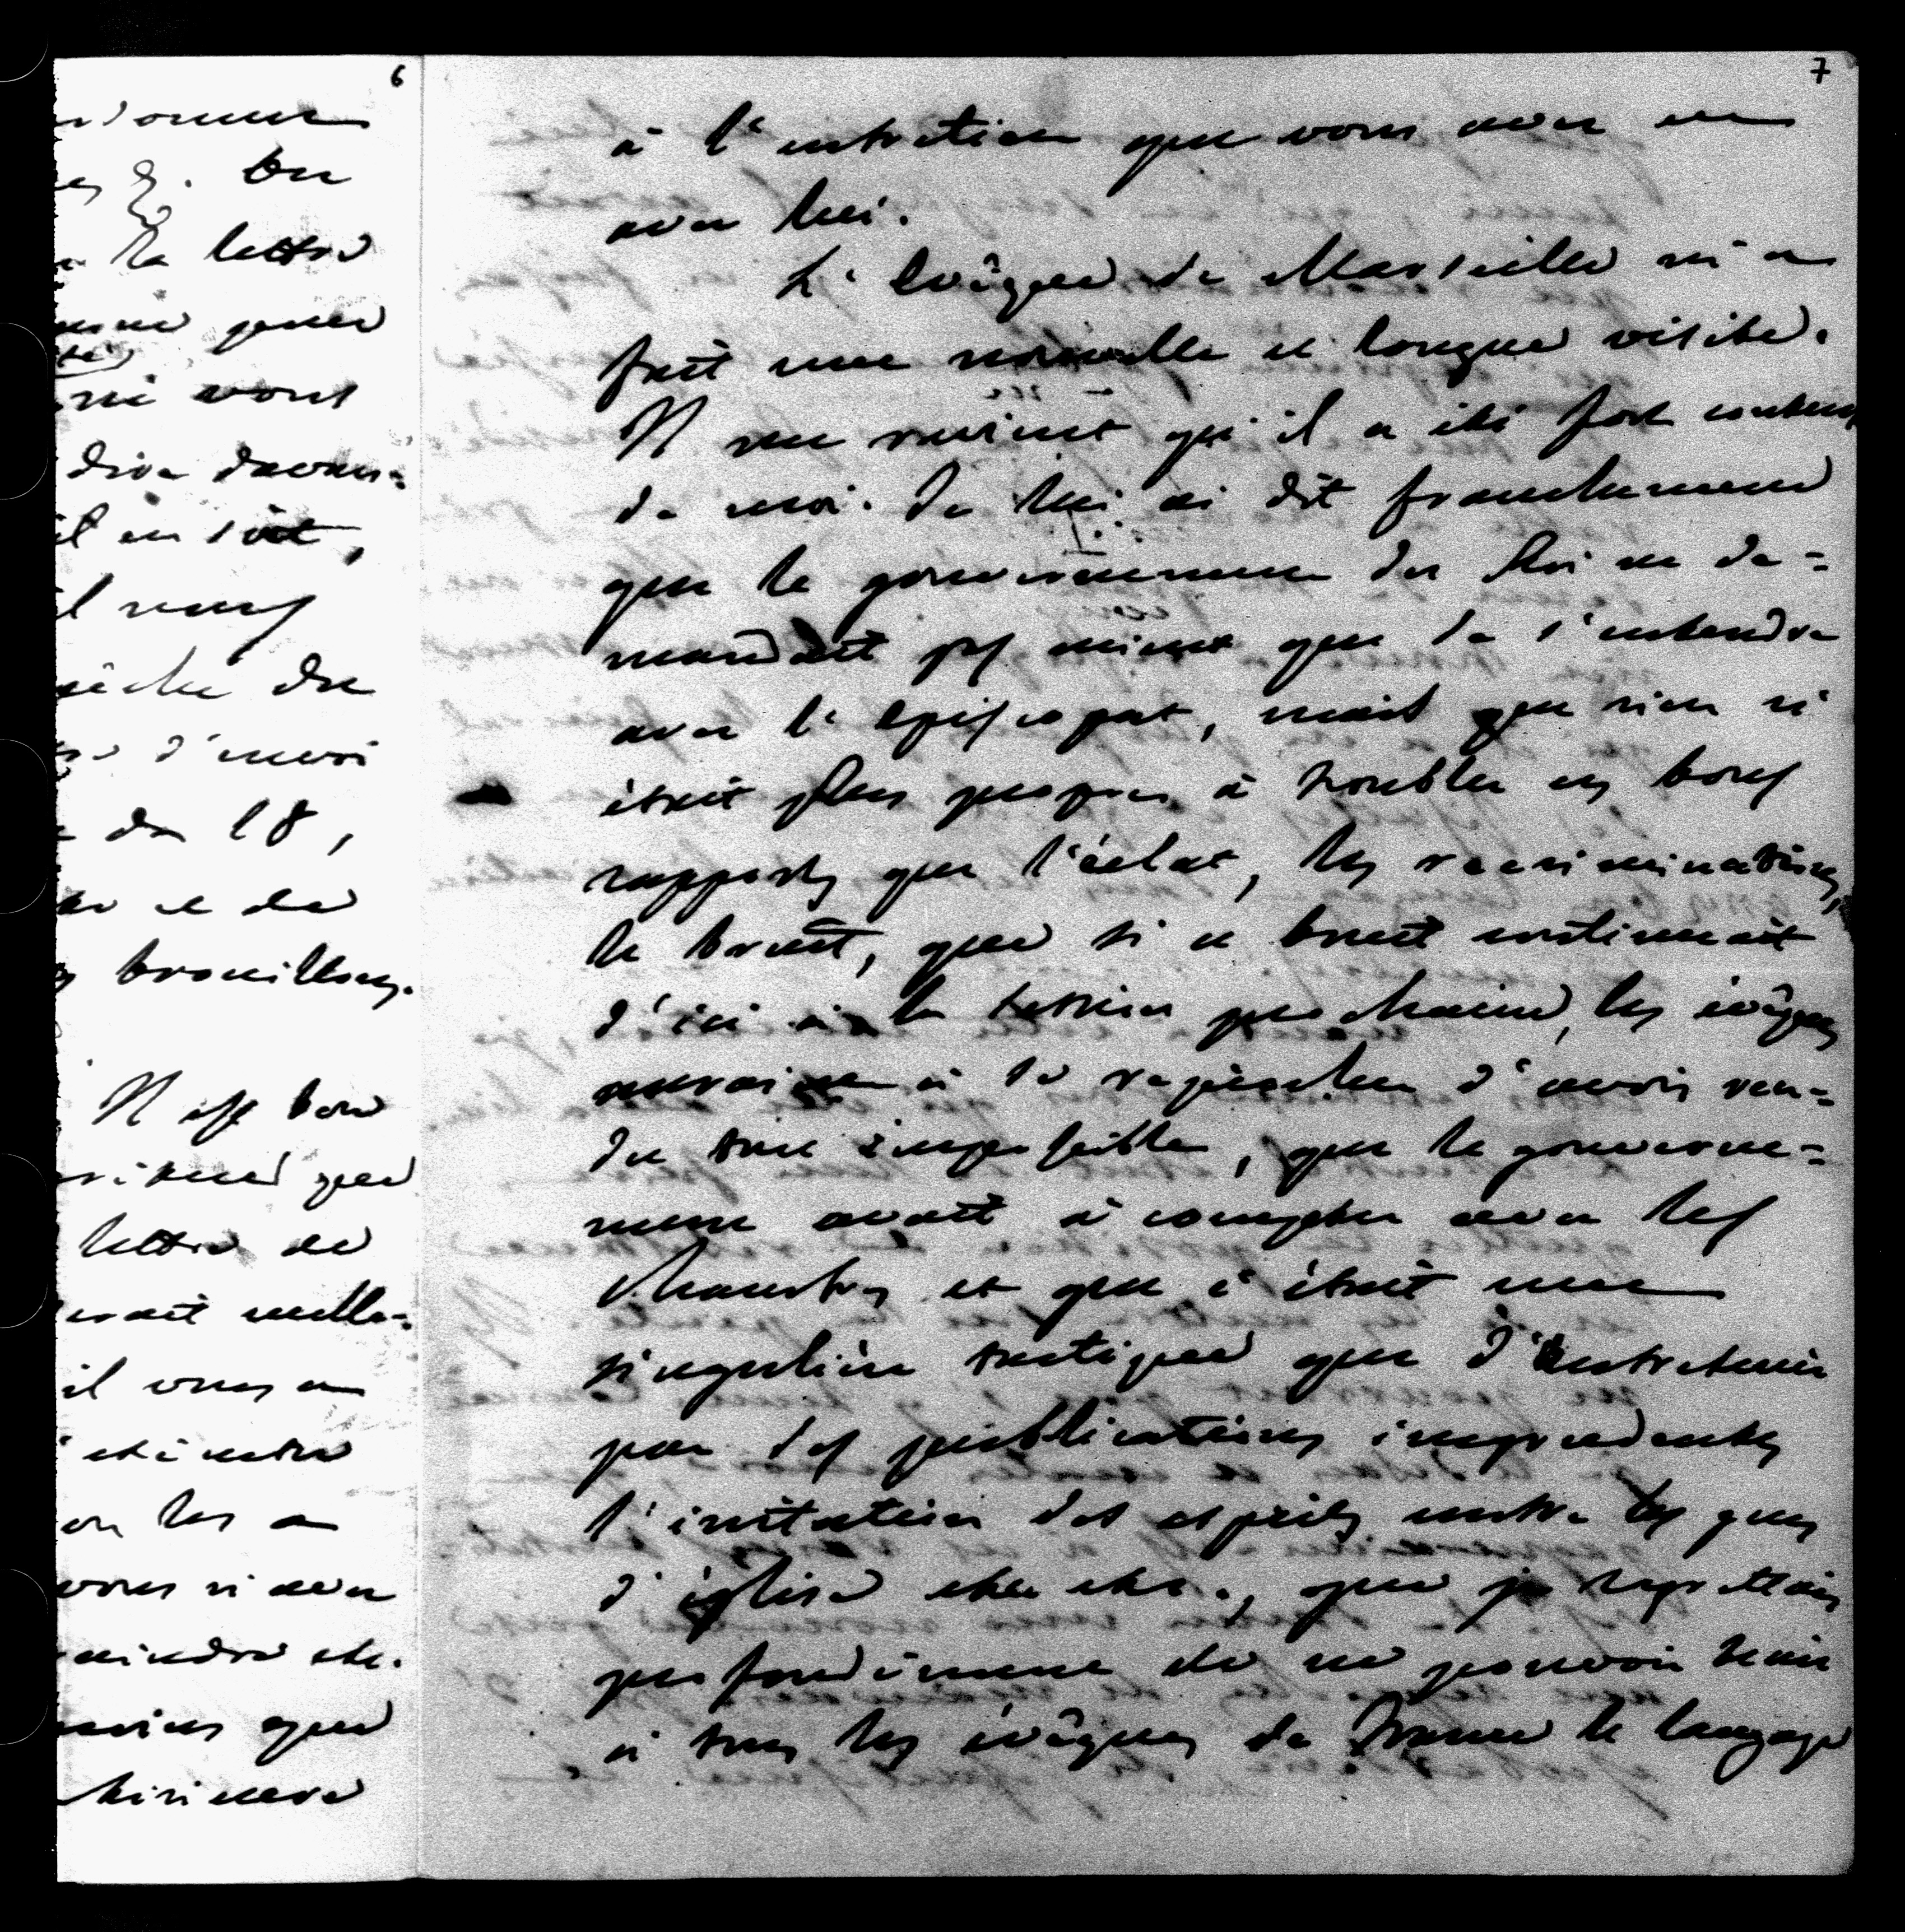 6
la lettre
vous
dire davan-
il en soit,
du
d'envoi
du 18,
et de
brouillons.
Il est bon
que
lettre de
il vous a
on les a
vous n'avez
etc.
que
7
à l'entretien que vous avez eu
avec lui.
L'Evêque de Marseille m'a
fait une nouvelle et longue visite.
Il me revient qu'il a été fort content
de moi. Je lui ai dit franchement
que le gouvernement du Roi ne de-
mandait pas mieux que de s'entendre
avec l'episcopat, mais que rien n'
était plus propre à troubler ces bons
rapports que l'éclat, les recriminations,
le bruit, que si ce bruit continuait
d'ici à la session prochaine, les évêques
auraient à se reprocher d'avoir ren-
du tout impossible, que le gouverne-
ment avait à compter avec les
Chambres et que c'était une
singulière tactique que d'entretenir
par des publications imprudentes
l'irritation des esprits contre les gens
d'église etc. etc., que je regrettais
profondément de ne pouvoir tenir
à tous les évêques de France le langage